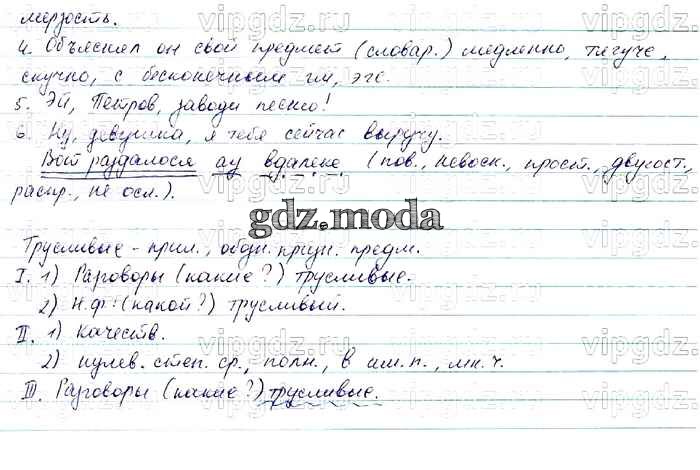 мерзость.
4. Объяснял он свой предмет (словар.) медленно, тягуче,
скучно, с бесконечным гм, эге.
5. Эй, Петров, заводи песню!
6. Ну, девушка, я тебя сейчас выручу.
Вот раздалося ау вдалеке (пов., невоск., прост., двусост.,
распр., не осл.).
gdz.moda
Трусливые - прил., обозн. призн. предм.
I. 1) Разговоры (какие?) трусливые.
2) Н.ф: (какой?) трусливый.
II. 1) Качеств.
2) нулев. степ. ср., полн., в им.п., мн.ч.
III. Разговоры (какие?) трусливые.
vipgdz.ru